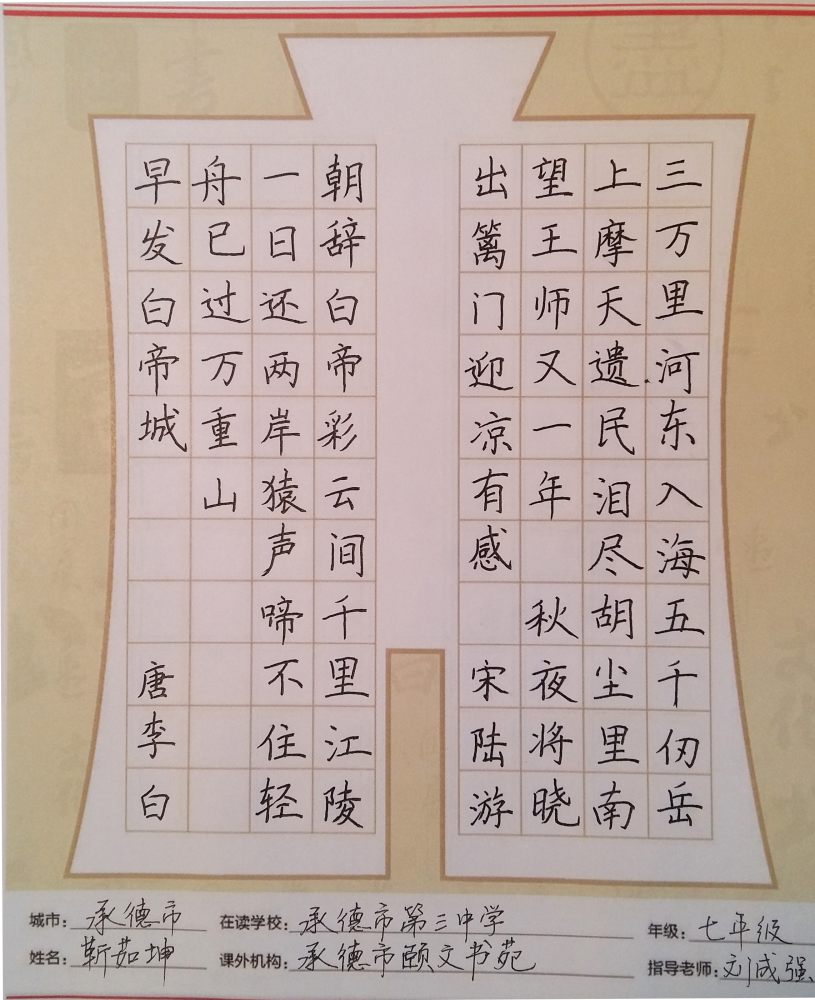 三万里河东入海五千仞岳
上摩天遗民泪尽胡尘里南
望王师又一年 秋夜将晓
出篱门迎凉有感 宋陆游
朝辞白帝彩云间千里江陵
一日还两岸猿声啼不住轻
舟已过万重山
早发白帝城 唐李白
城市：承德市 在读学校：承德市第三中学 年级：七年级
姓名：靳茹坤 课外机构：承德市颐文书苑 指导老师：刘成强